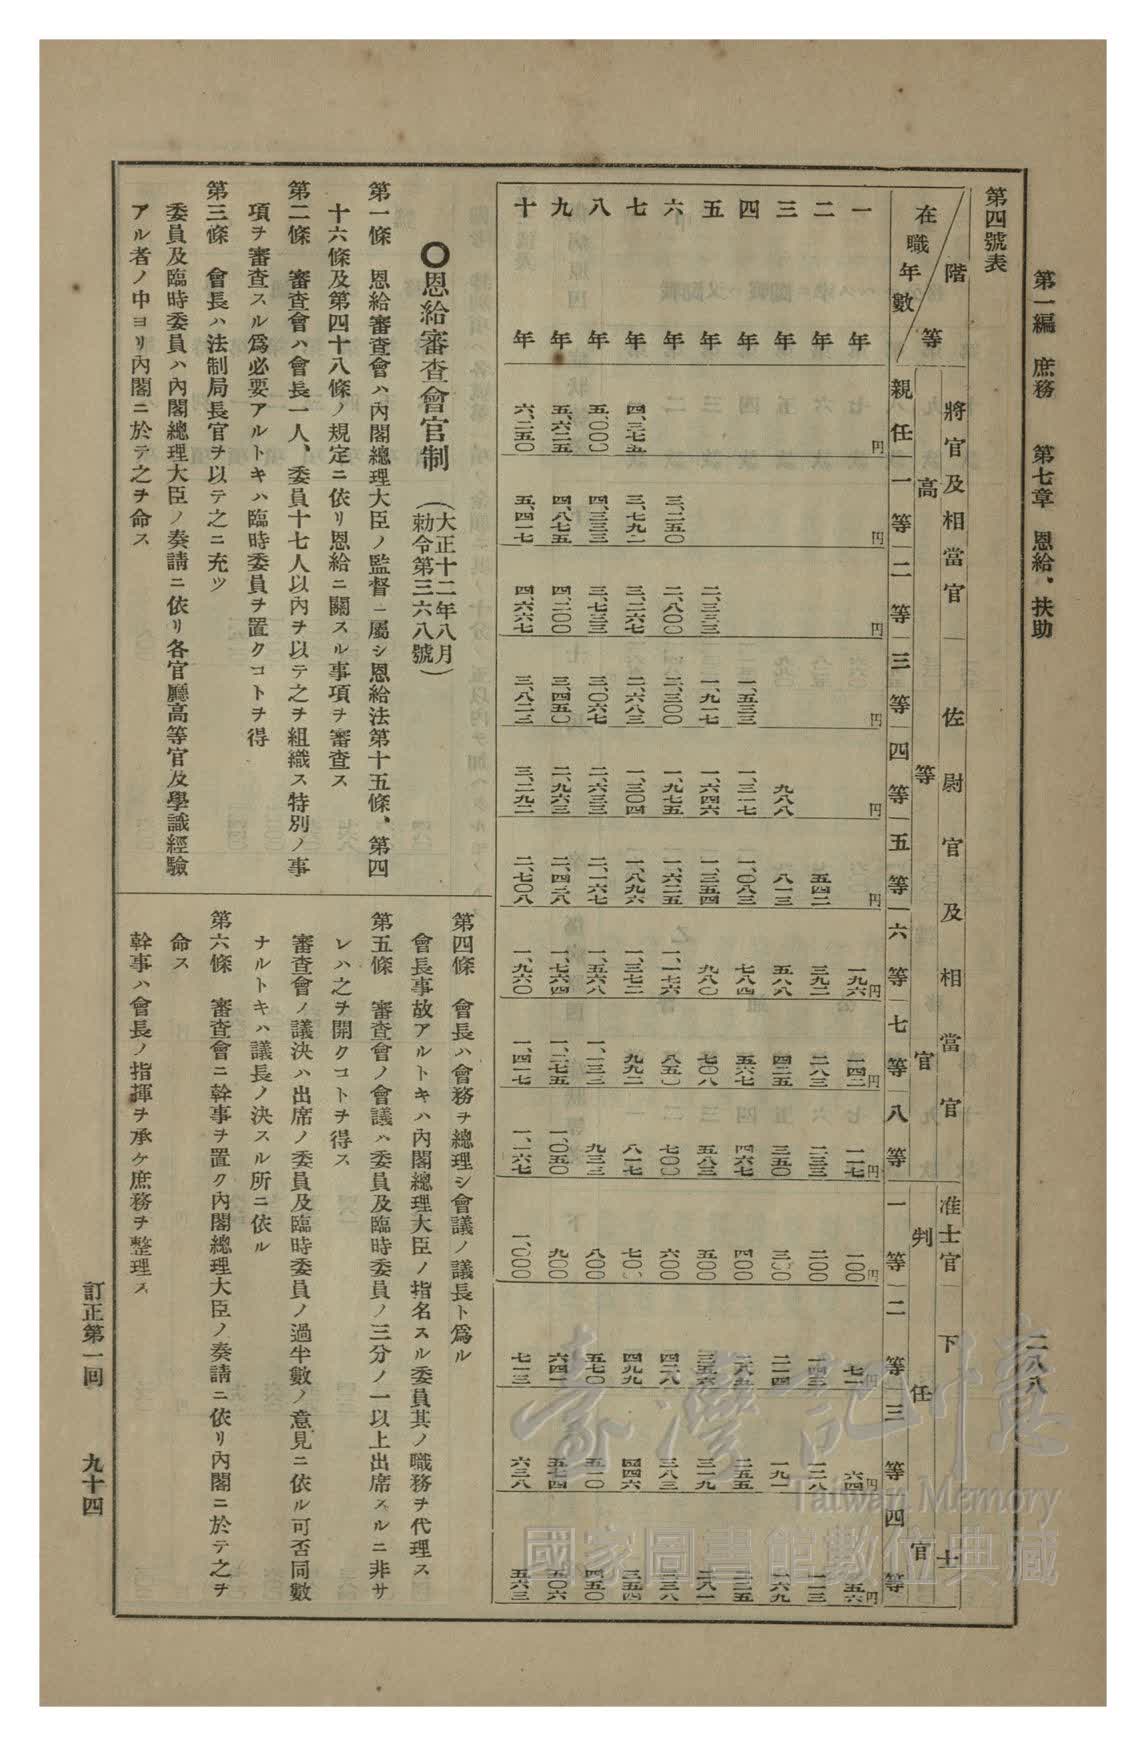 第一編 庶務 第七章 恩給、扶助
二八八
第四號表
階等
在職年數
將官及相當官 佐尉官及相當官 准士官 下士
高等官 判任官
親任 一等 二等 三等 四等 五等 六等 七等 八等 一等 二等 三等 四等
円 円 円 円 円 円 円 円 円 円 円 円 円
一年 一九六 一四二 一一七 一〇〇 七一 六四 五六
二年 五四二 三九二 二八三 二三三 二〇〇 一四三 一二八 一一三
三年 九八八 八一三 五八八 四二五 三五〇 三〇〇 二一四 一九一 一六九
四年 一、五三三 一、三一七 一、〇八三 七八四 五六七 四六七 四〇〇 二八五 二五五 二二五
五年 二、三三三 一、九一七 一、六四六 一、三五四 九八〇 七〇八 五八三 五〇〇 三五六 三一九 二八一
六年 三、二五〇 二、八〇〇 二、三〇〇 一、九七五 一、六二五 一、一七六 八五〇 七〇〇 六〇〇 四二八 三八三 三三八
七年 四、三七五 三、七九二 三、二六七 二、六八三 二、三〇四 一、八九六 一、三七二 九九二 八一七 七〇〇 四九九 四四六
八年 五、〇〇〇 四、三三三 三、七三三 三、〇六七 二、六三三 二、一六七 一、五六八 一、一三三 九三三 八〇〇 五七〇 五一〇 四五〇
九年 五、六二五 四、八七五 四、二〇〇 三、四五〇 二、九六三 二、四三八 一、七六四 一、二七五 一、〇五〇 九〇〇 六四一 五七四 五〇六
十年 六、二五〇 五、四一七 四、六六七 三、八三三 三、二九二 二、七〇八 一、九六〇 一、四一七 一、一六七 一、〇〇〇 七一三 六三八 五六三
○恩給審查會官制
(大正十二年八月
勅令第三六八號)
第一條 恩給審查會ハ內閣總理大臣ノ監督ニ屬シ恩給法第十五條、第四
十六條及第四十八條ノ規定ニ依リ恩給ニ關スル事項ヲ審查ス
第二條 審查會ハ會長一人、委員十七人以內ヲ以テ之ヲ組織ス特別ノ事
項ヲ審查スル爲必要アルトキハ臨時委員ヲ置クコトヲ得
第三條 會長ハ法制局長官ヲ以テ之ニ充ツ
委員及臨時委員ハ內閣總理大臣ノ奏請ニ依リ各官廳高等官及學識經驗
アル者ノ中ヨリ內閣ニ於テ之ヲ命ス
第四條 會長ハ會務ヲ總理シ會議ノ議長ト爲ル
會長事故アルトキハ內閣總理大臣ノ指名スル委員其ノ職務ヲ代理ス
第五條 審查會ノ會議ハ委員及臨時委員ノ三分ノ一以上出席スルニ非サ
レハ之ヲ開クコトヲ得ス
審查會ノ議決ハ出席ノ委員及臨時委員ノ過半數ノ意見ニ依ル可否同數
ナルトキハ議長ノ決スル所ニ依ル
第六條 審查會ニ幹事ヲ置ク內閣總理大臣ノ奏請ニ依リ內閣ニ於テ之ヲ
命ス
幹事ハ會長ノ指揮ヲ承ケ庶務ヲ整理ス
訂正第一回 九十四
臺灣記憶
Taiwan Memory
國家圖書館數位典藏